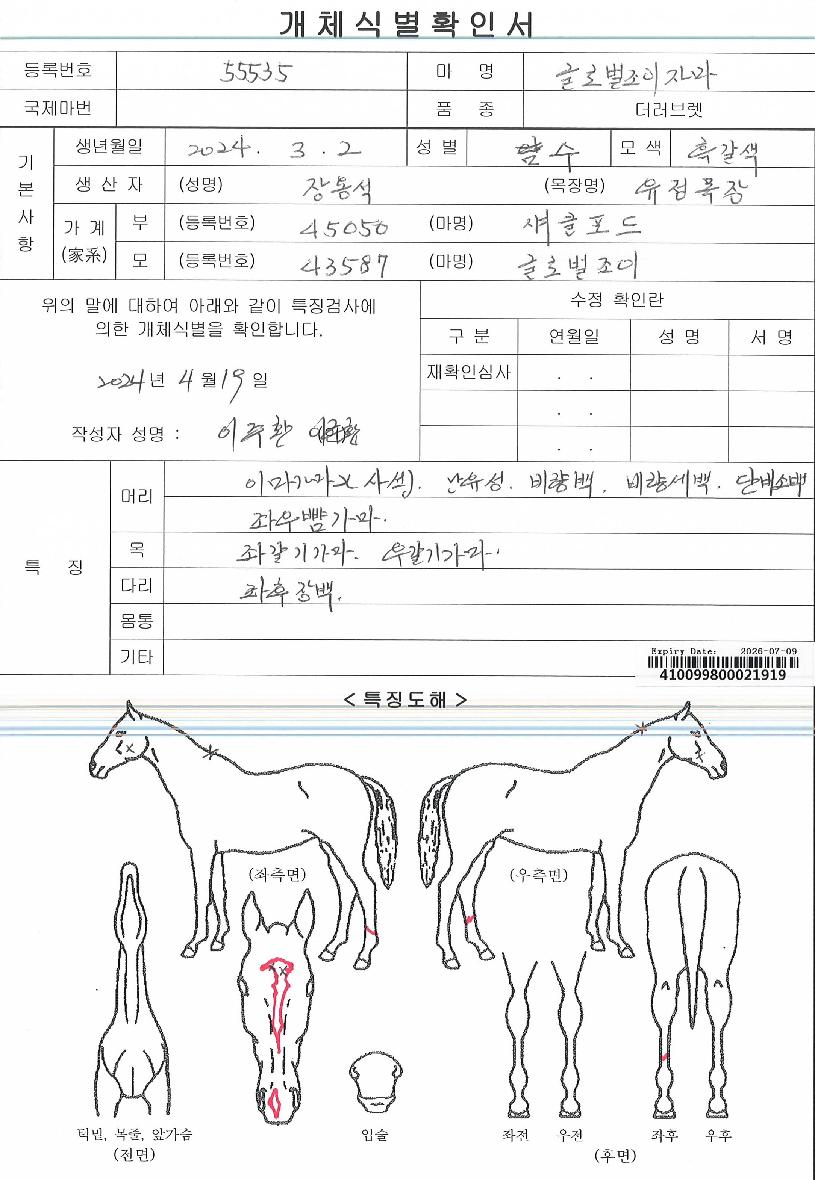 개체식별확인서
등록번호 55535 마 명 글로벌조이자마
국제마번 품 종 더러브렛
기본사항
생년월일 2024. 3. 2 성 별 암 수 모 색 흑갈색
생 산 자 (성명) 장용석 (목장명) 유점목장
가 계 (家系) 부 (등록번호) 45050 (마명) 섀클포드
모 (등록번호) 43587 (마명) 글로벌조이
위의 말에 대하여 아래와 같이 특징검사에
의한 개체식별을 확인합니다.
2024년 4월 19일
작성자 성명 : 이주환
수정 확인란
구 분 연월일 성 명 서 명
재확인심사 . .
. .
. .
특 징
머리 이마가마(사선). 난유성. 비량백. 비량세백. 단비소백
좌우뺨가마.
목 좌갈기가마. 우갈기가마.
다리 좌후장백.
몸통
기타
Expiry Date: 2026-07-09
410099800021919
<특징도해>
(좌측면) (우측면)
턱밑, 목줄, 앞가슴
(전면)
입술
좌전 우전 좌후 우후
(후면)